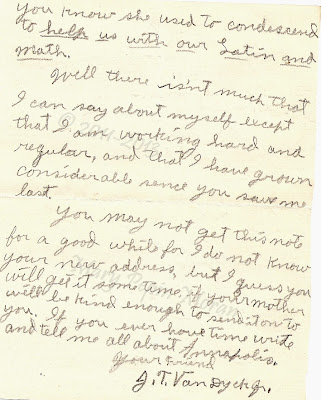 you know she used to condescend
to help us with our Latin and
Math.
Well there isn't much that
I can say about myself except
that I am working hard and
regular, and that I have grown
considerable sence you saw me
last.
You may not get this note
for a good while for I do not know
your new address, but I guess you
will get it some time if your mother
will be kind enough to send it on to
you. If you ever have time write
and tell me all about Annapolis.
Your friend
J. T. Van Dyck Jr.